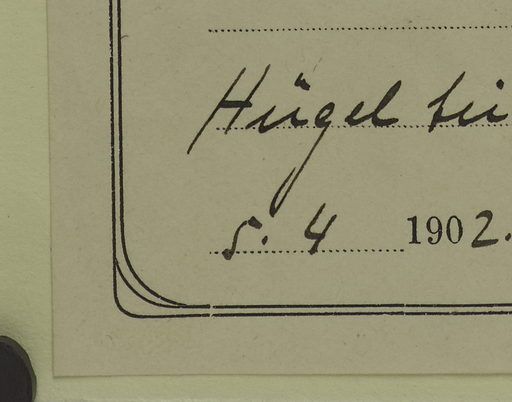 Hügel bei
5. 4 1902.